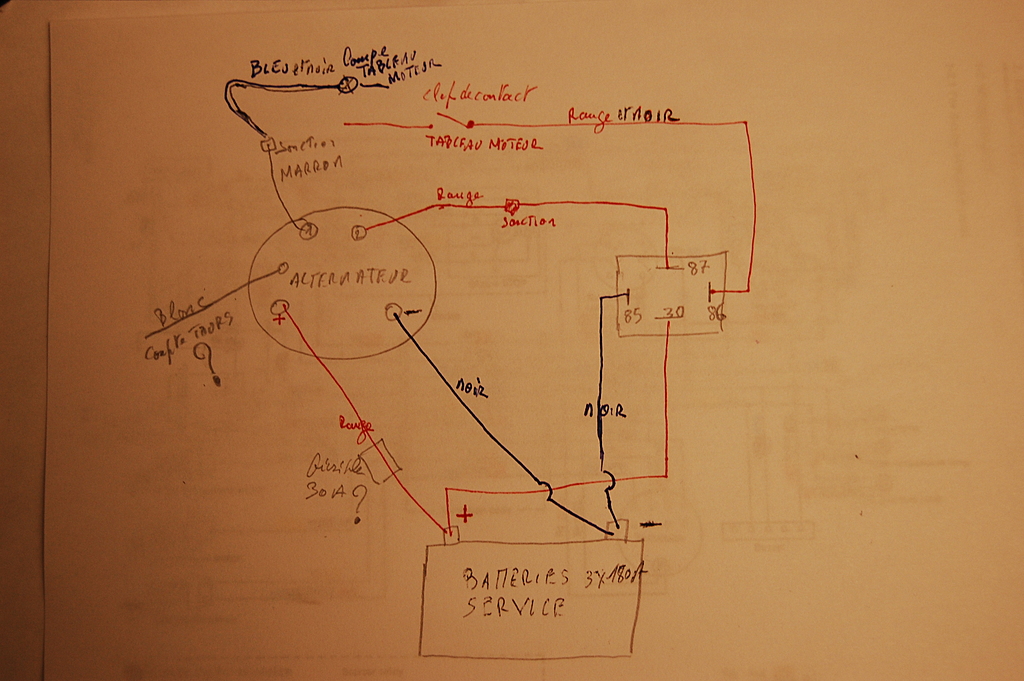 BLEU et NOIR
Compte
TABLEAU
MOTEUR
clef de contact
Rouge et NOIR
TABLEAU MOTEUR
Jonction
MARRON
Rouge
Jonction
1
2
ALTERNATEUR
87
85
30
86
+
-
Blanc
Compte TOURS
?
NOIR
NOIR
Rouge
Fusible
30A
?
+
-
BATTERIES 3X180A
SERVICE